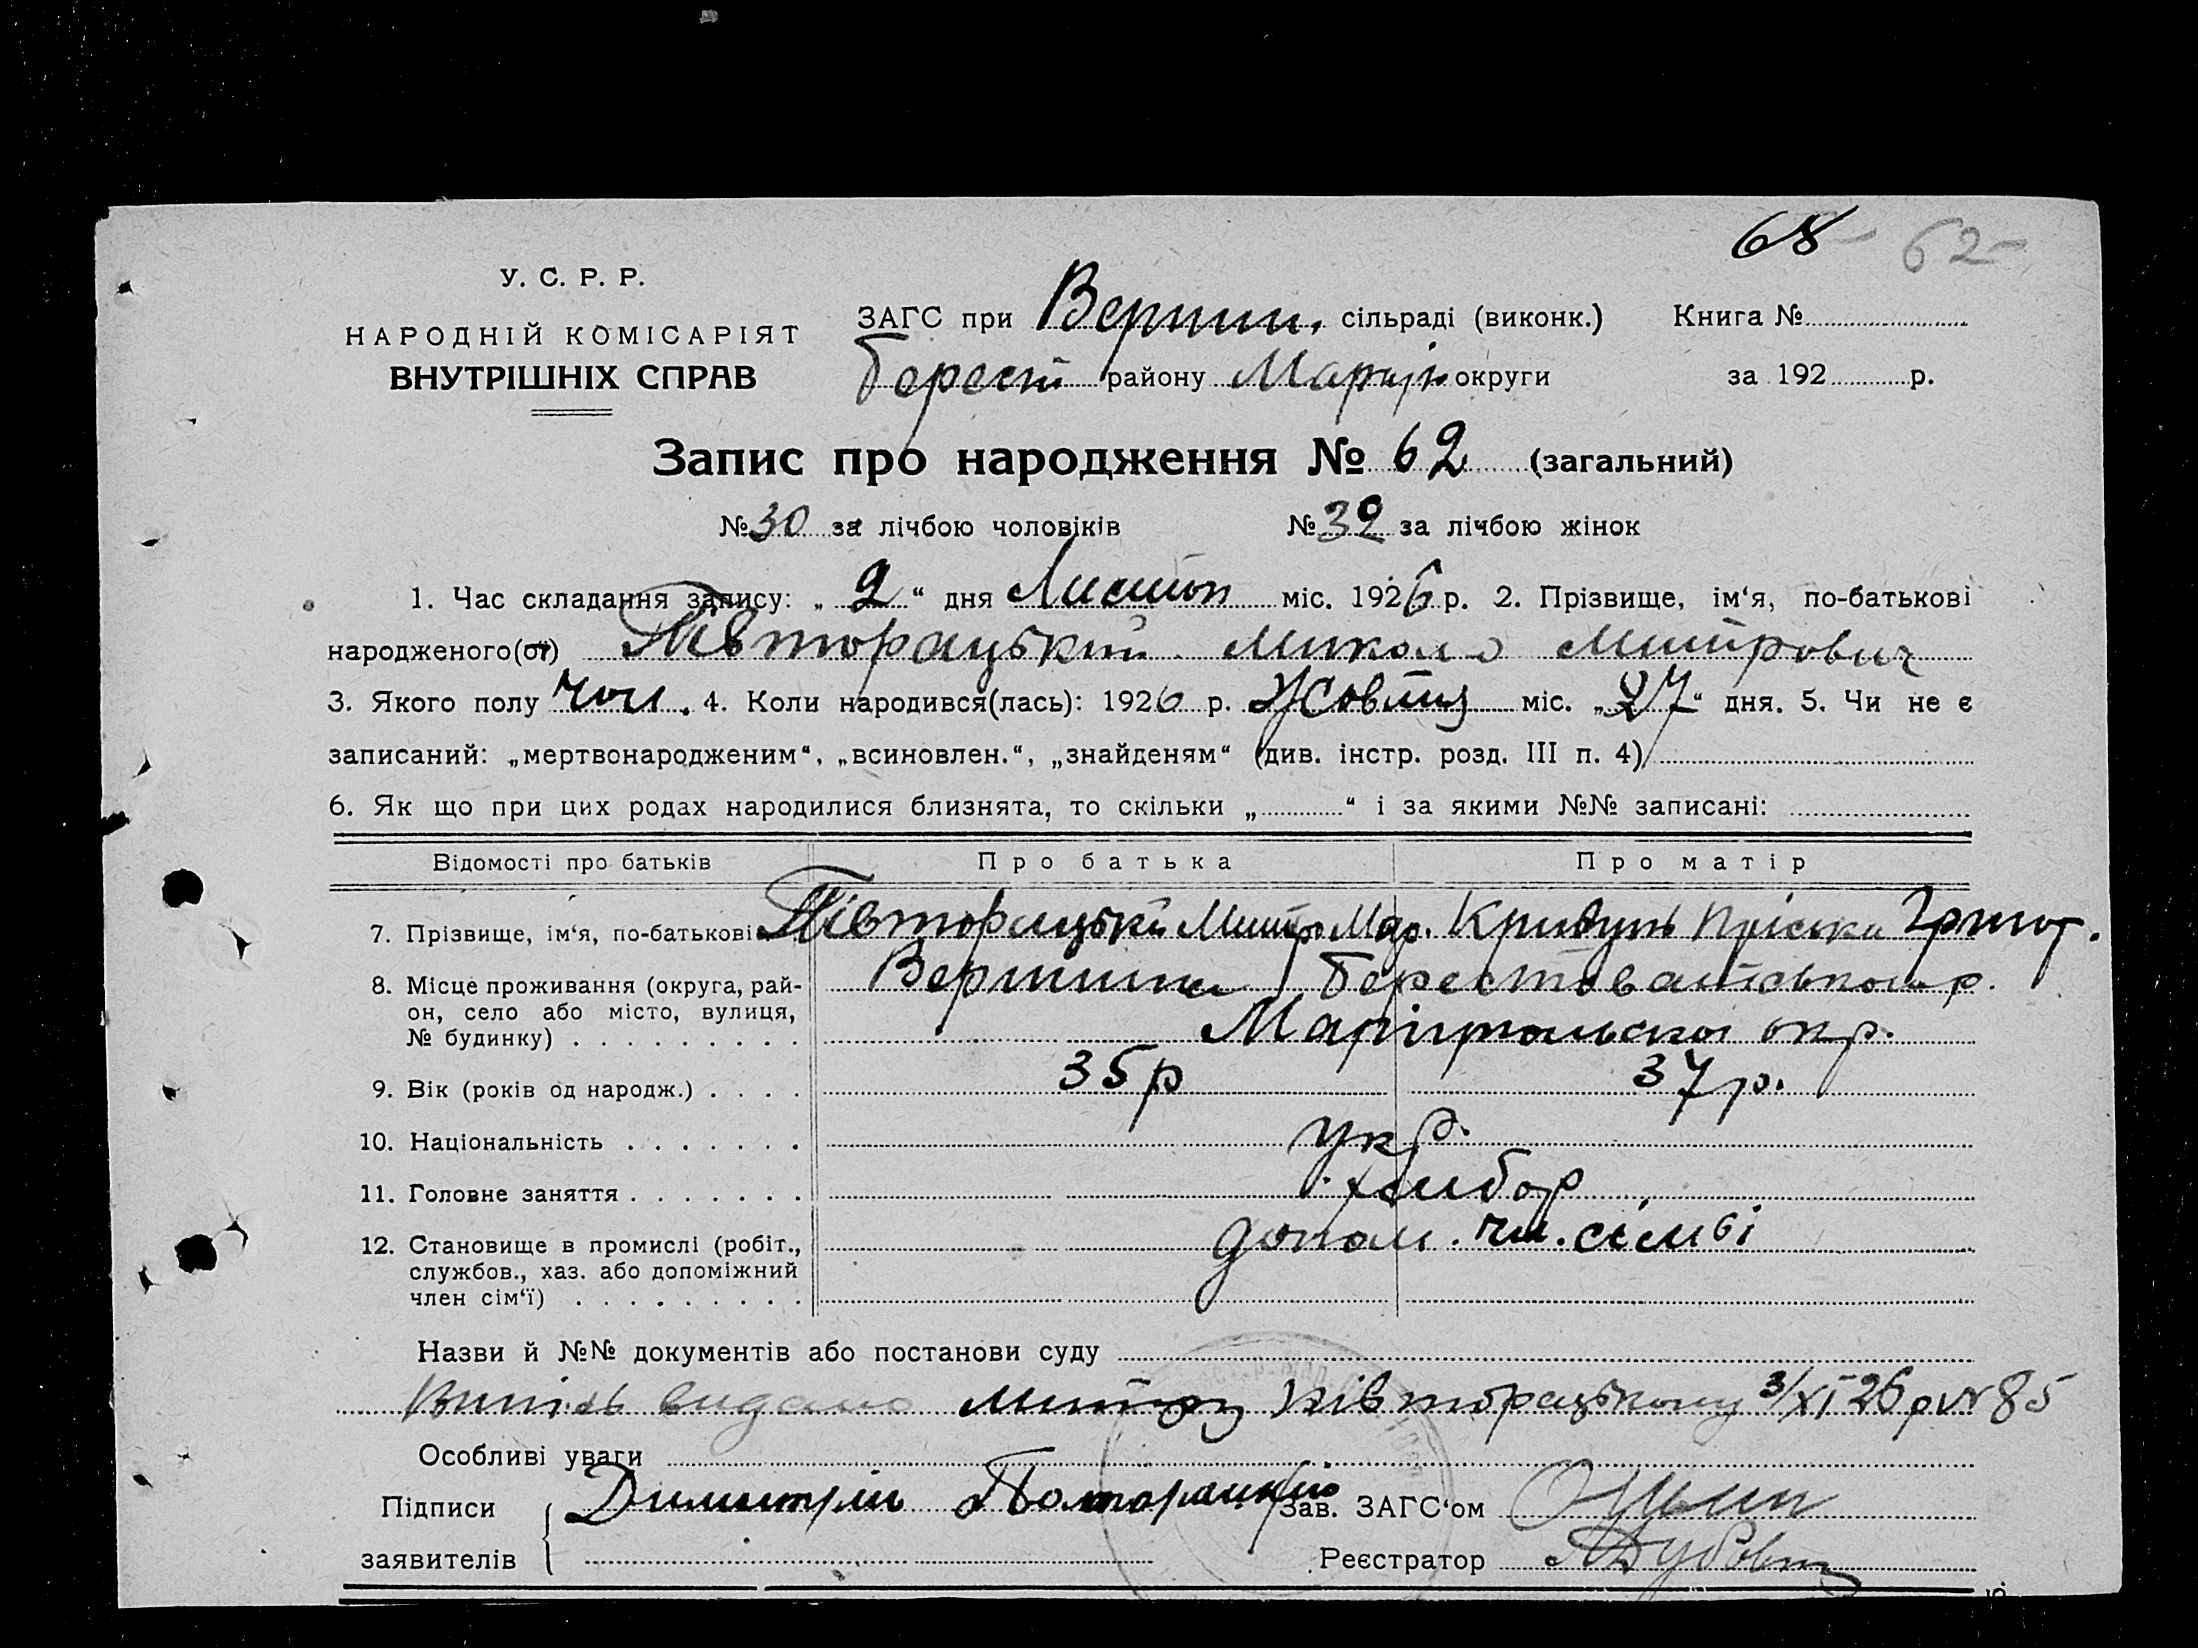 68 62
У. С. Р. Р.
НАРОДНІЙ КОМІСАРІЯТ
ВНУТРІШНІХ СПРАВ
ЗАГС при Вершин. сільраді (виконк.) Книга №
Берест району Маріюп округи за 192 р.
Запис про народження № 62 (загальний)
№ 30 за лічбою чоловіків № 32 за лічбою жінок
1. Час складання запису: „ 2 “ дня Листоп міс. 1926 р. 2. Прізвище, ім‘я, по-батькові
народженого(ої) Півторацький Микола Митрович
3. Якого полу чол. 4. Коли народився(лась): 1926 р. Жовтня міс. „27“ дня. 5. Чи не є
записаний: „мертвонародженим“, „всиновлен.“, „знайденям“ (див. інстр. розд. III п. 4)
6. Як що при цих родах народилися близнята, то скільки „ “ і за якими №№ записані:
Відомості про батьків Про батька Про матір
7. Прізвище, ім‘я, по-батькові Півторацькі Митро Кривунь Пріська Григор.
8. Місце проживання (округа, рай-
он, село або місто, вулиця,
№ будинку)
Вершина Берестоватського р.
Маріупольскої окр.
9. Вік (років од народж.) 35 р 37 р.
10. Національність укр.
11. Головне заняття хлібор
12. Становище в промислі (робіт.,
службов., хаз. або допоміжний
член сім‘ї)
допом. чл. сімʼі
Назви й №№ документів або постанови суду
Випись видано Митру Півторацькому 3/XI 26 р № 85
Особливі уваги
Підписи
заявителів
Димитрій Полторацкий
Зав. ЗАГС‘ом
Реєстратор